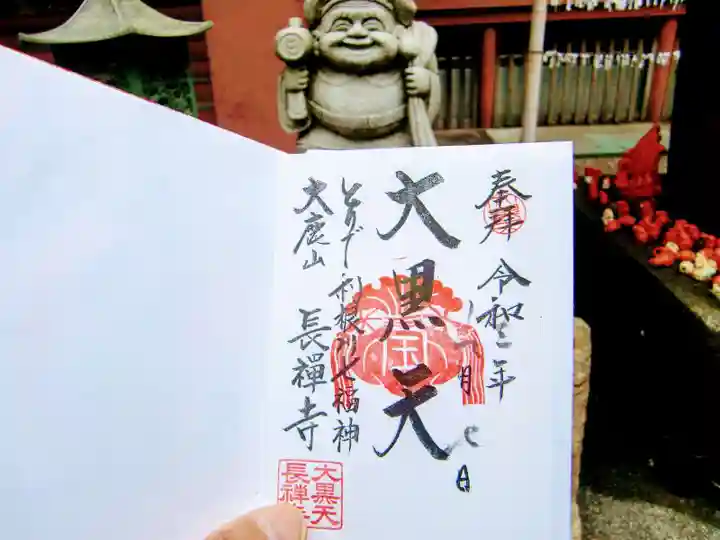 奉拝
令和二年
月七日
大黒天
とりで利根川七福神
大鹿山 長禪寺
宝
大黒天
長禅寺